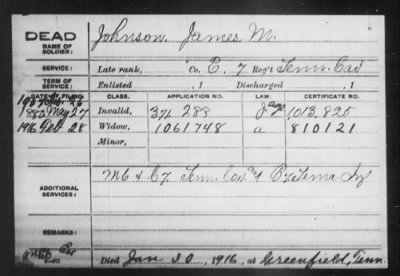 DEAD
NAME OF SOLDIER: Johnson, James M.
SERVICE: Late rank, Co. E, 7 Reg't Tenn. Cav
TERM OF SERVICE: Enlisted , 1 Discharged , 1
DATE OF FILING. CLASS. APPLICATION NO. LAW. CERTIFICATE NO.
1880 May 27 Invalid, 376 288 1,013,825
1916 Feb 28 Widow, 1061748 a 810121
Minor,
ADDITIONAL SERVICES: M & C 7 Tenn. Cav & Tenn
REMARKS:
Died Jan 30, 1916, at Greenfield, Tenn.